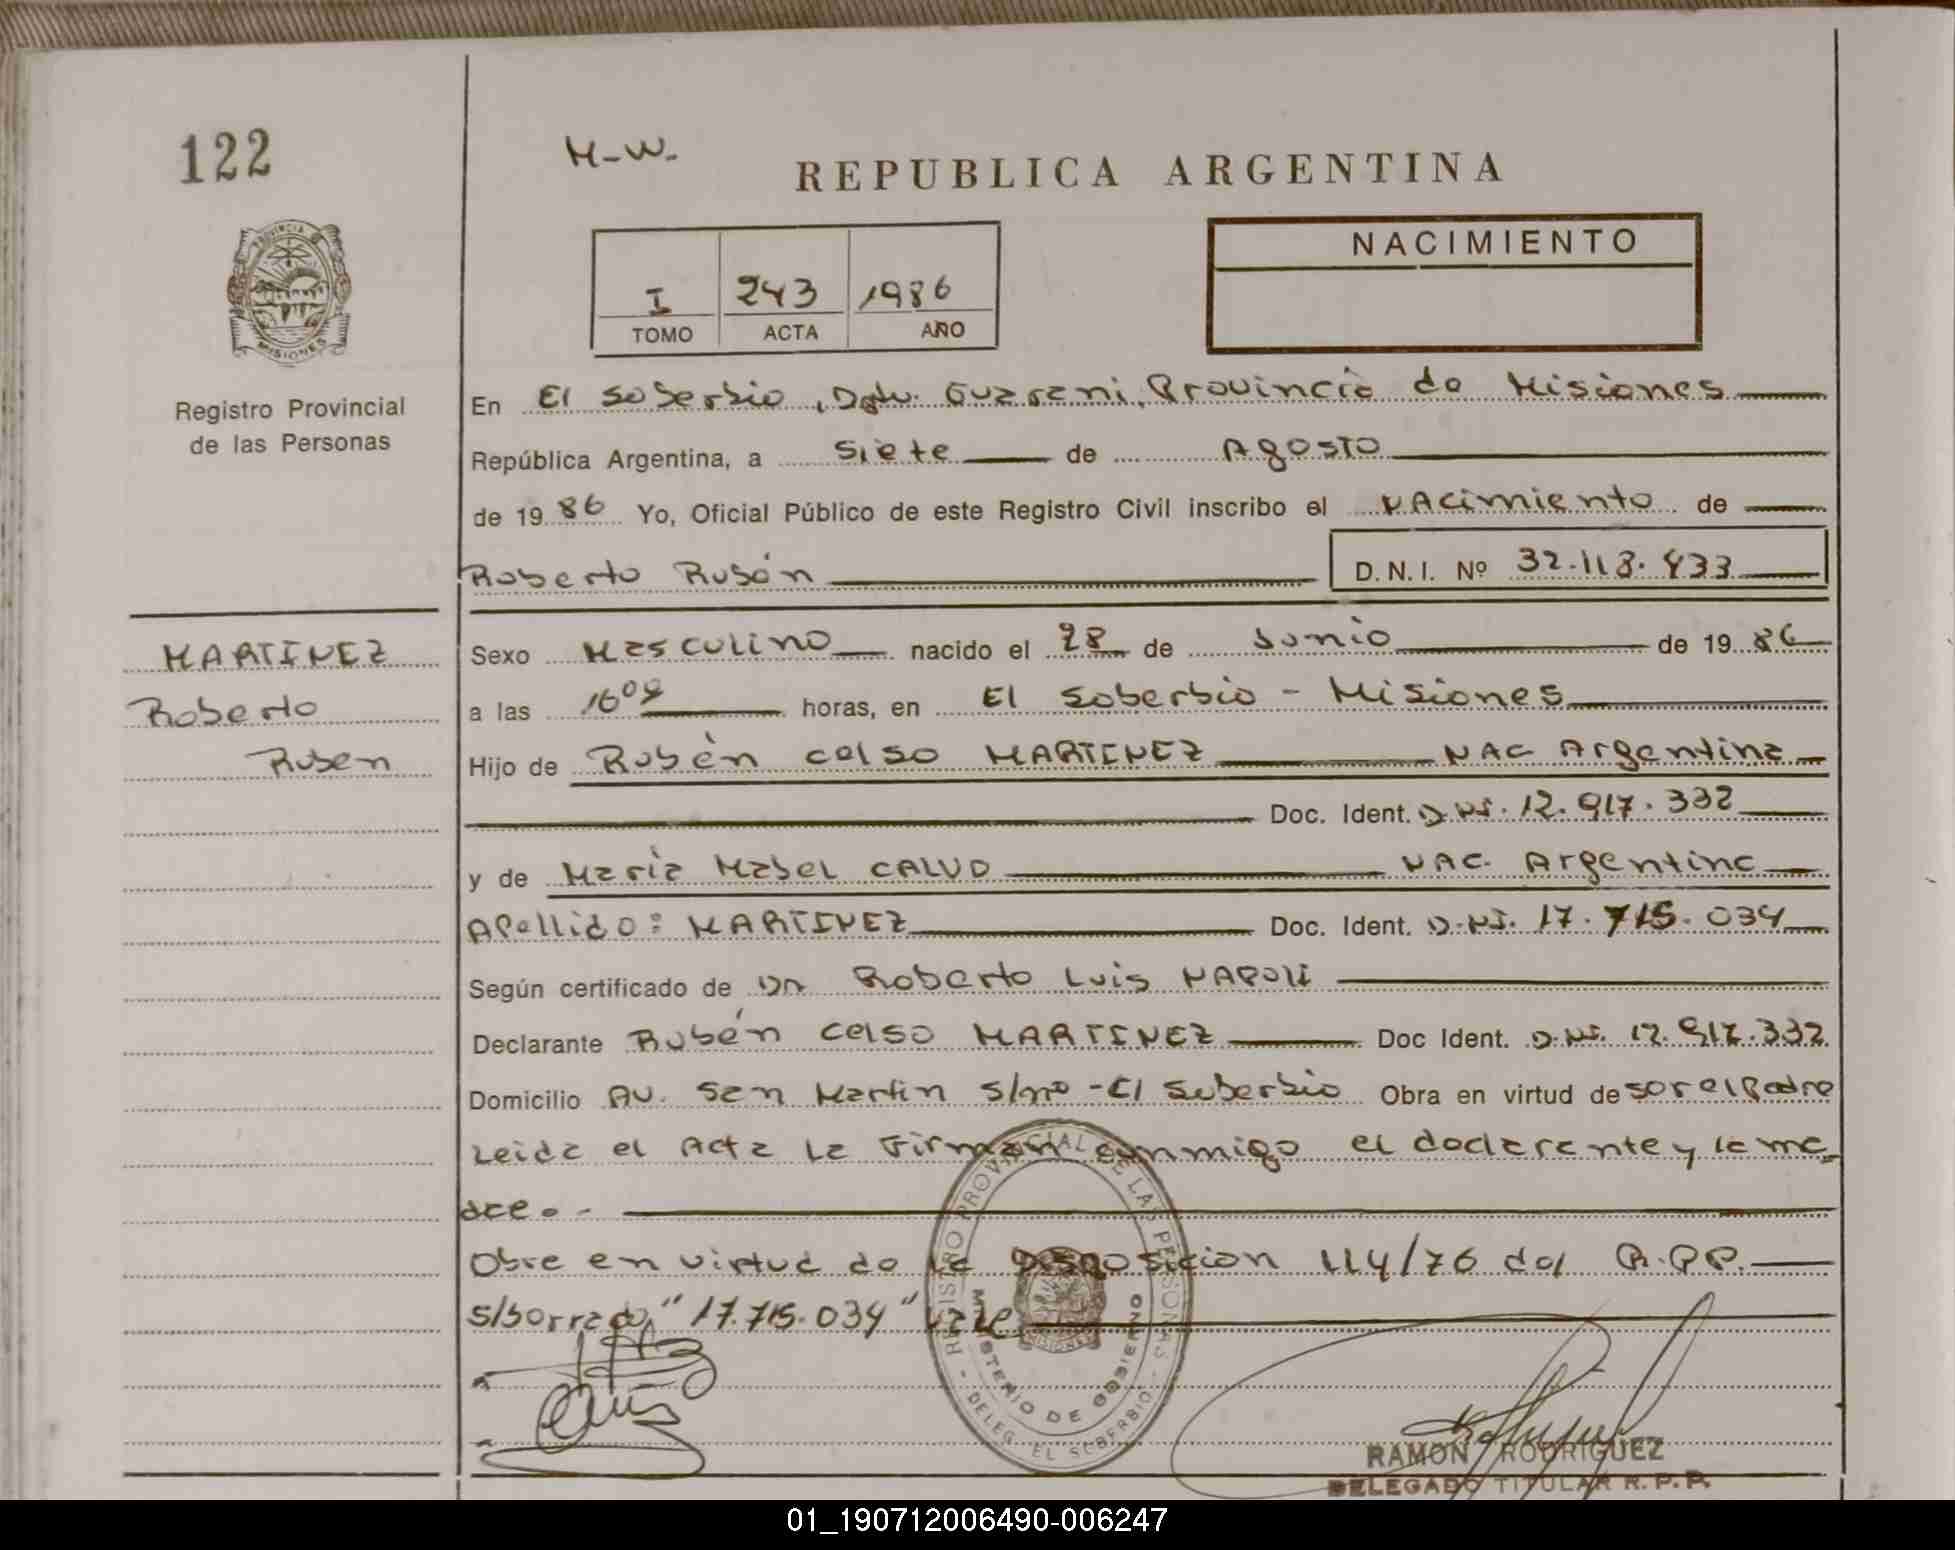 122
M-W.
REPUBLICA ARGENTINA
PROVINCIA DE
MISIONES
I 243 1986
TOMO ACTA AÑO
NACIMIENTO
Registro Provincial
de las Personas
En El Soberbio, Dpto. Guarani, Provincia de Misiones
República Argentina, a Siete de Agosto
de 1986 Yo, Oficial Público de este Registro Civil inscribo el Nacimiento de
Roberto Rubén D.N.I. Nº 32.118.433
MARTINEZ
Roberto
Ruben
Sexo Masculino nacido el 28 de Junio de 1986
a las 16 horas, en El Soberbio - Misiones
Hijo de Rubén Celso MARTINEZ NAC Argentina
Doc. Ident. D.NI. 12.917.332
y de Maria Mabel CALVO NAC. Argentina
Apellido: MARTINEZ Doc. Ident. D.NI. 17.715.034
Según certificado de Dr Roberto Luis NAPOLI
Declarante Rubén Celso MARTINEZ Doc Ident. D.NI. 12.917.332
Domicilio Av. San Martin s/nº - El Soberbio Obra en virtud de ser el Padre
Leida el Acta La Firman conmigo el declarante y la ma-
dre.-
Obra en virtud de la Disposicion 114/76 del R.P.P.
s/borrado "17.715.034" Vale
REGISTRO PROVINCIAL DE LAS PERSONAS
MINISTERIO DE GOBIERNO
MISIONES
- DELEG. EL SOBERBIO -
RAMON RODRIGUEZ
DELEGADO TITULAR R.P.P.
01_190712006490-006247